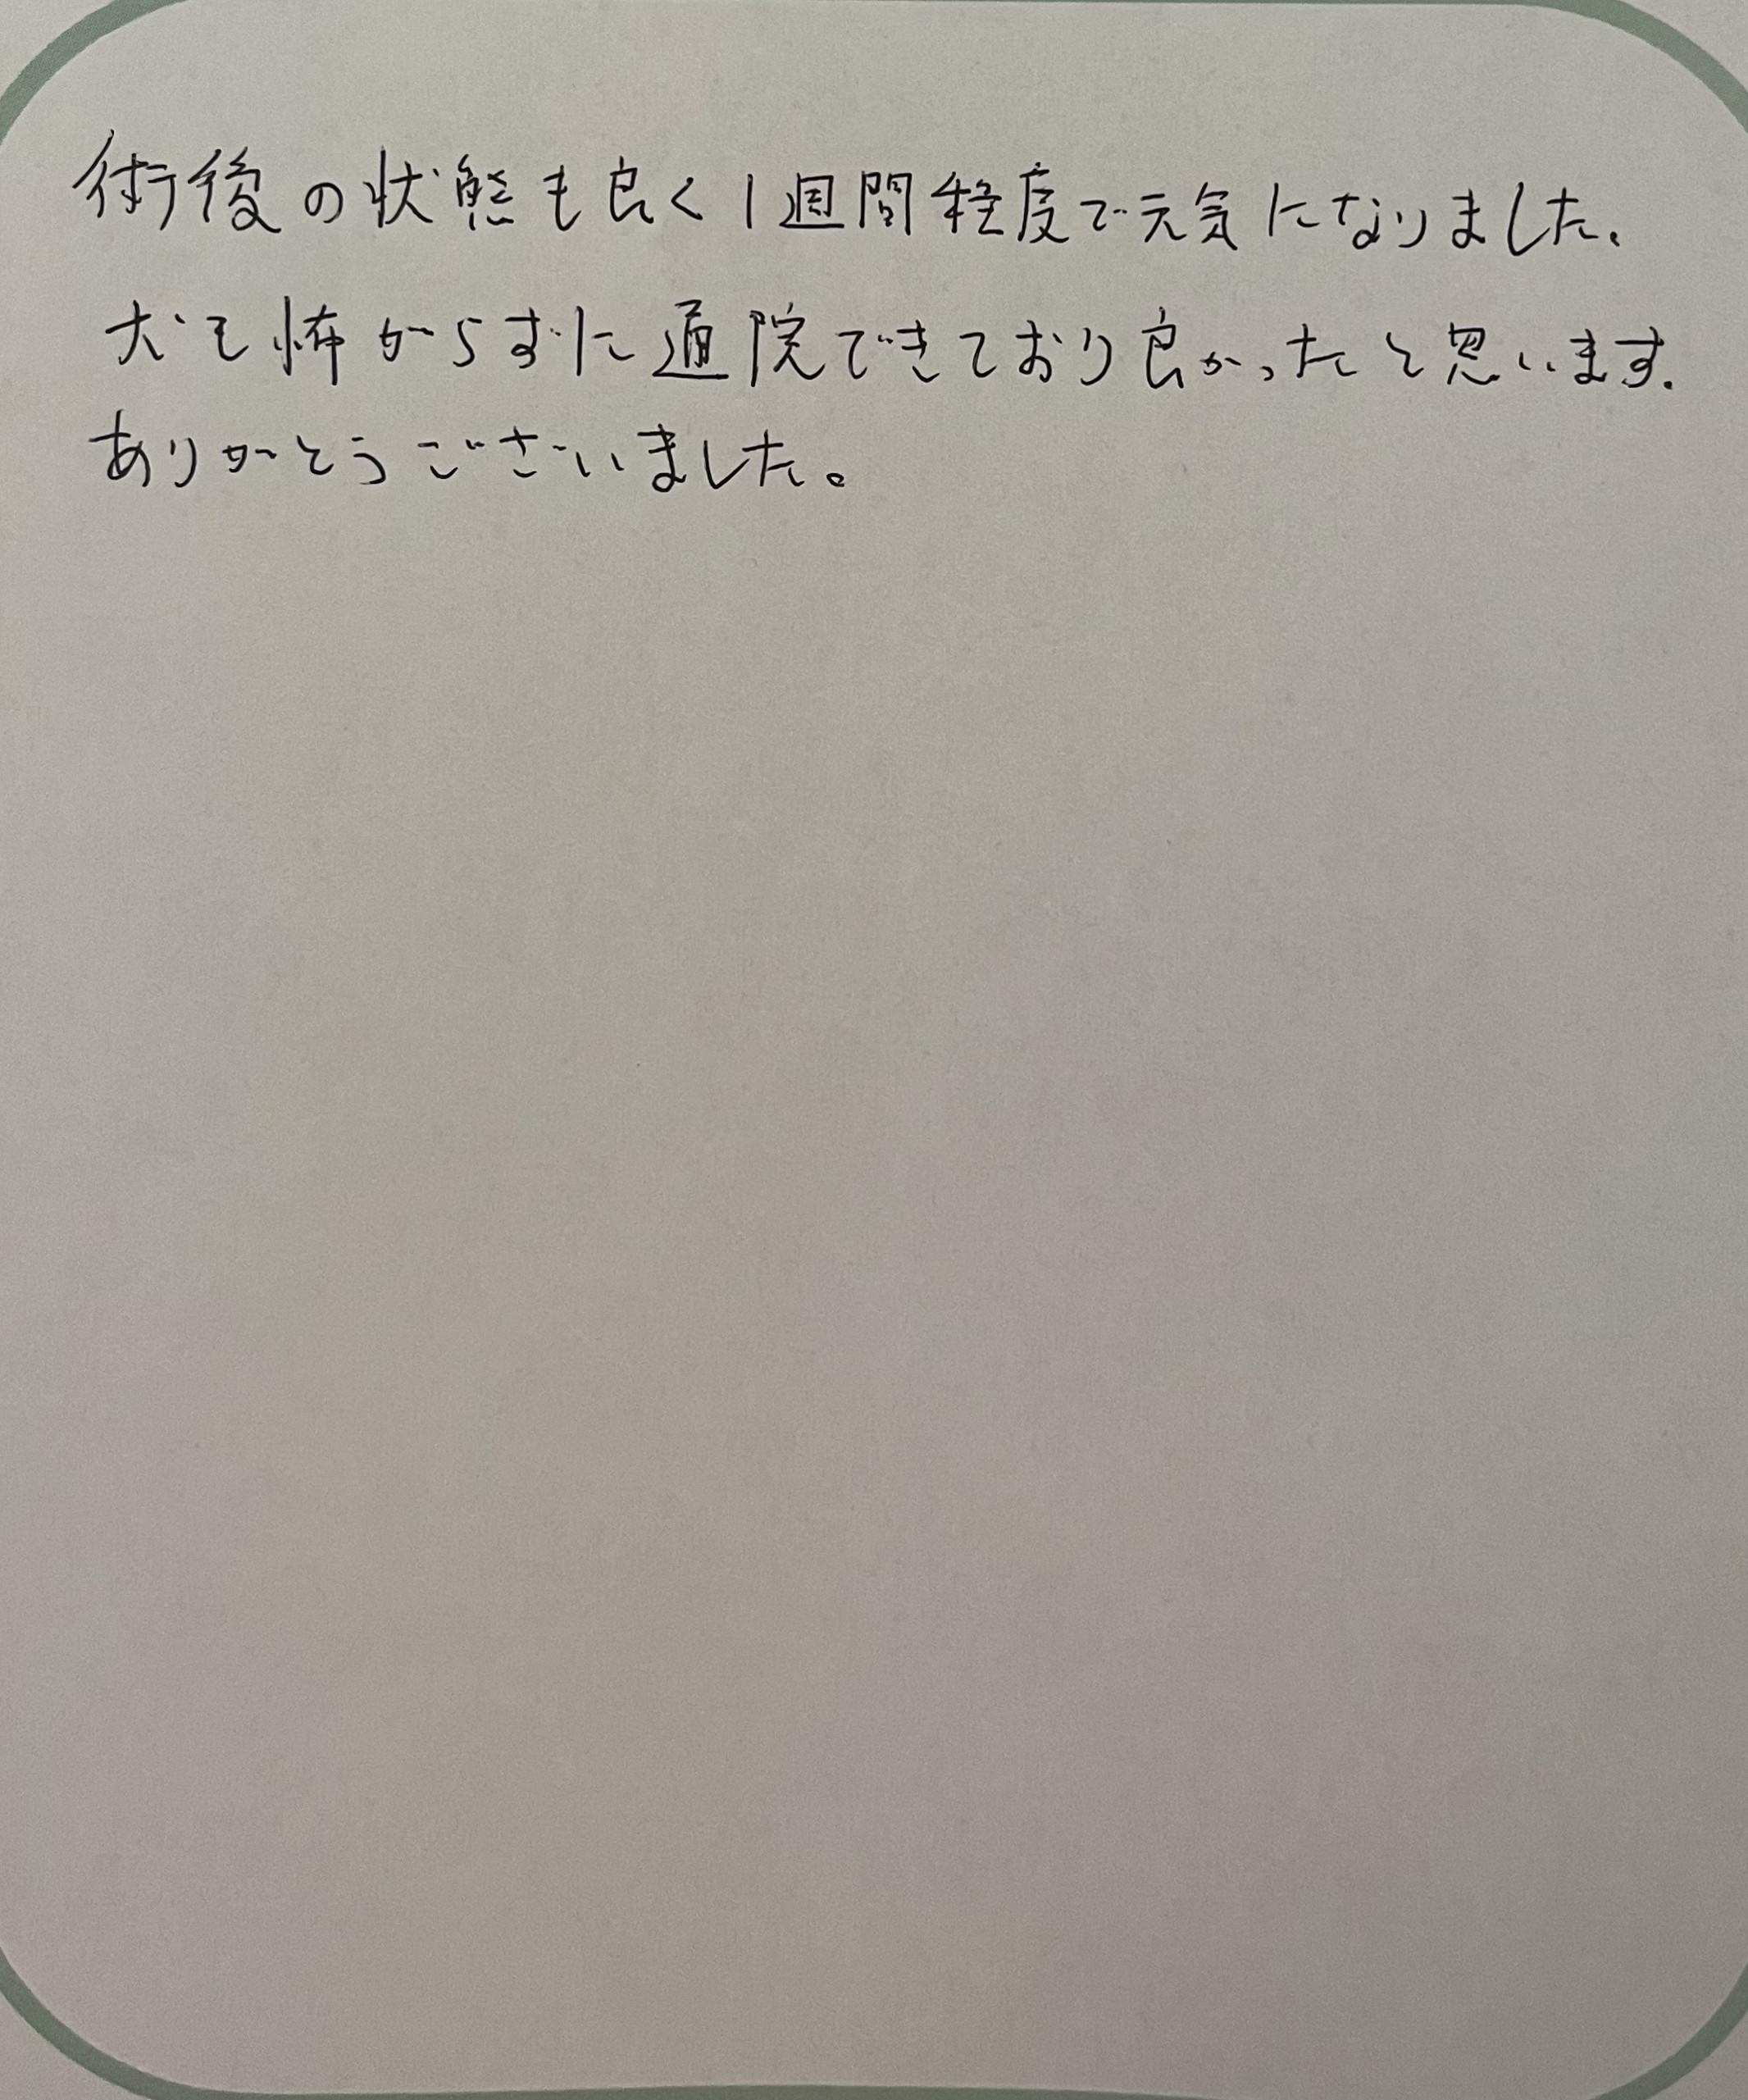 術後の状態も良く1週間程度で元気になりました。
犬も怖がらずに通院できており良かったと思います.
ありがとうございました。